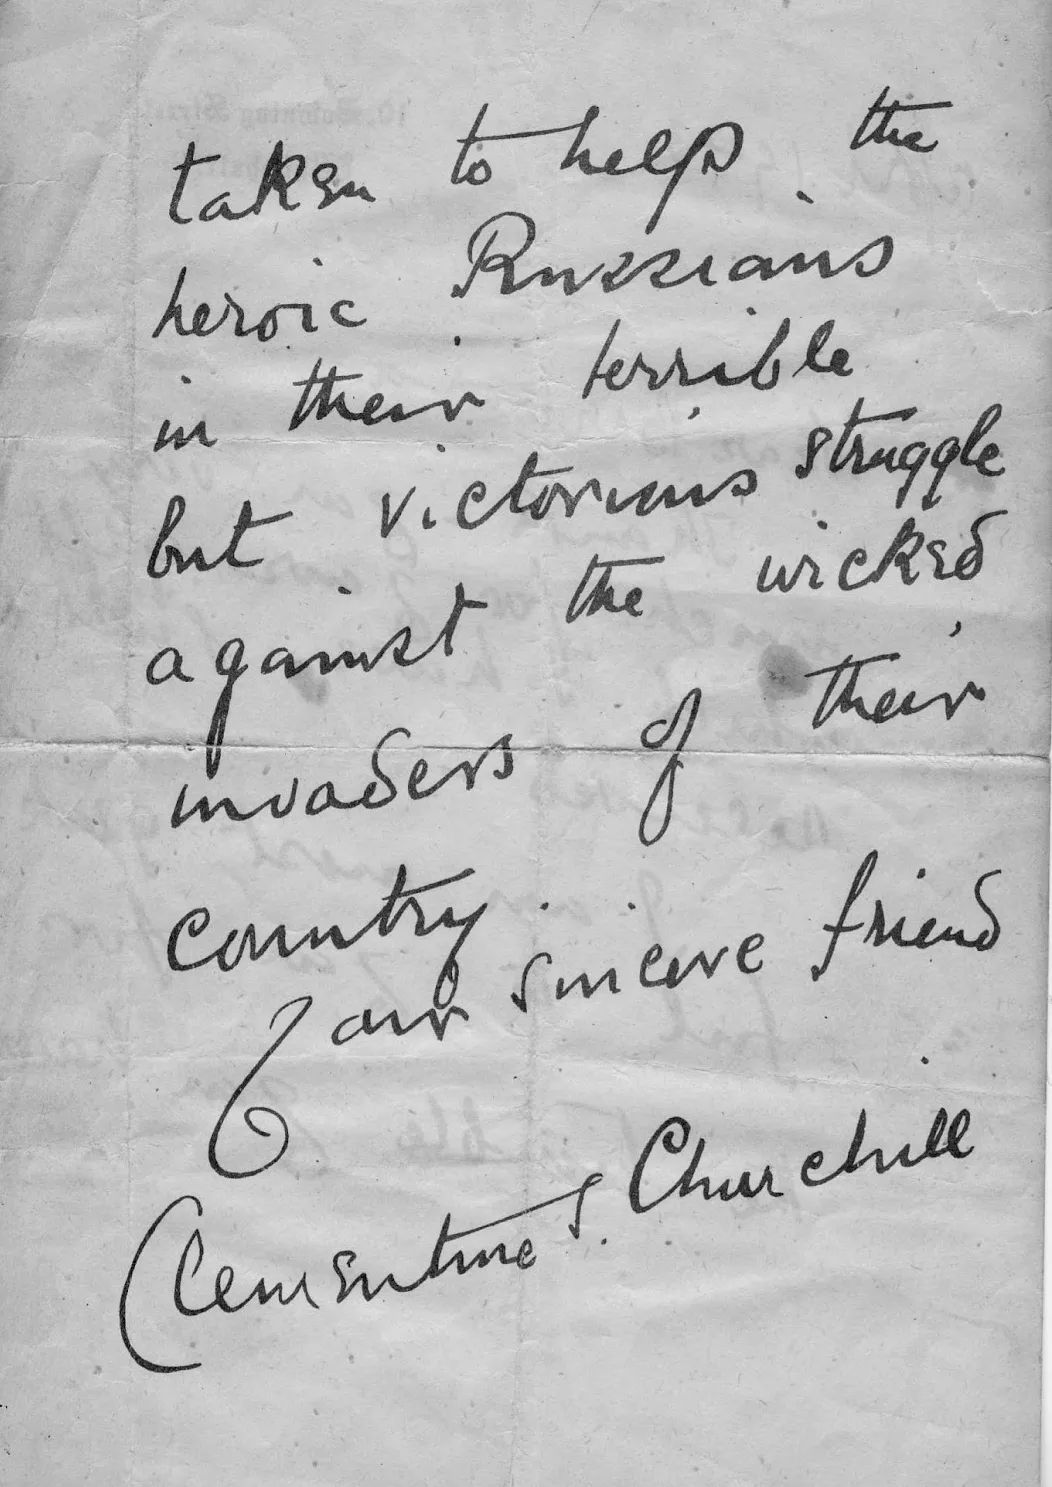 taken to help the
heroic Russians
in their terrible
but victorious struggle
against the wicked
invaders of their
country.
Your sincere friend
Clementine S. Churchill